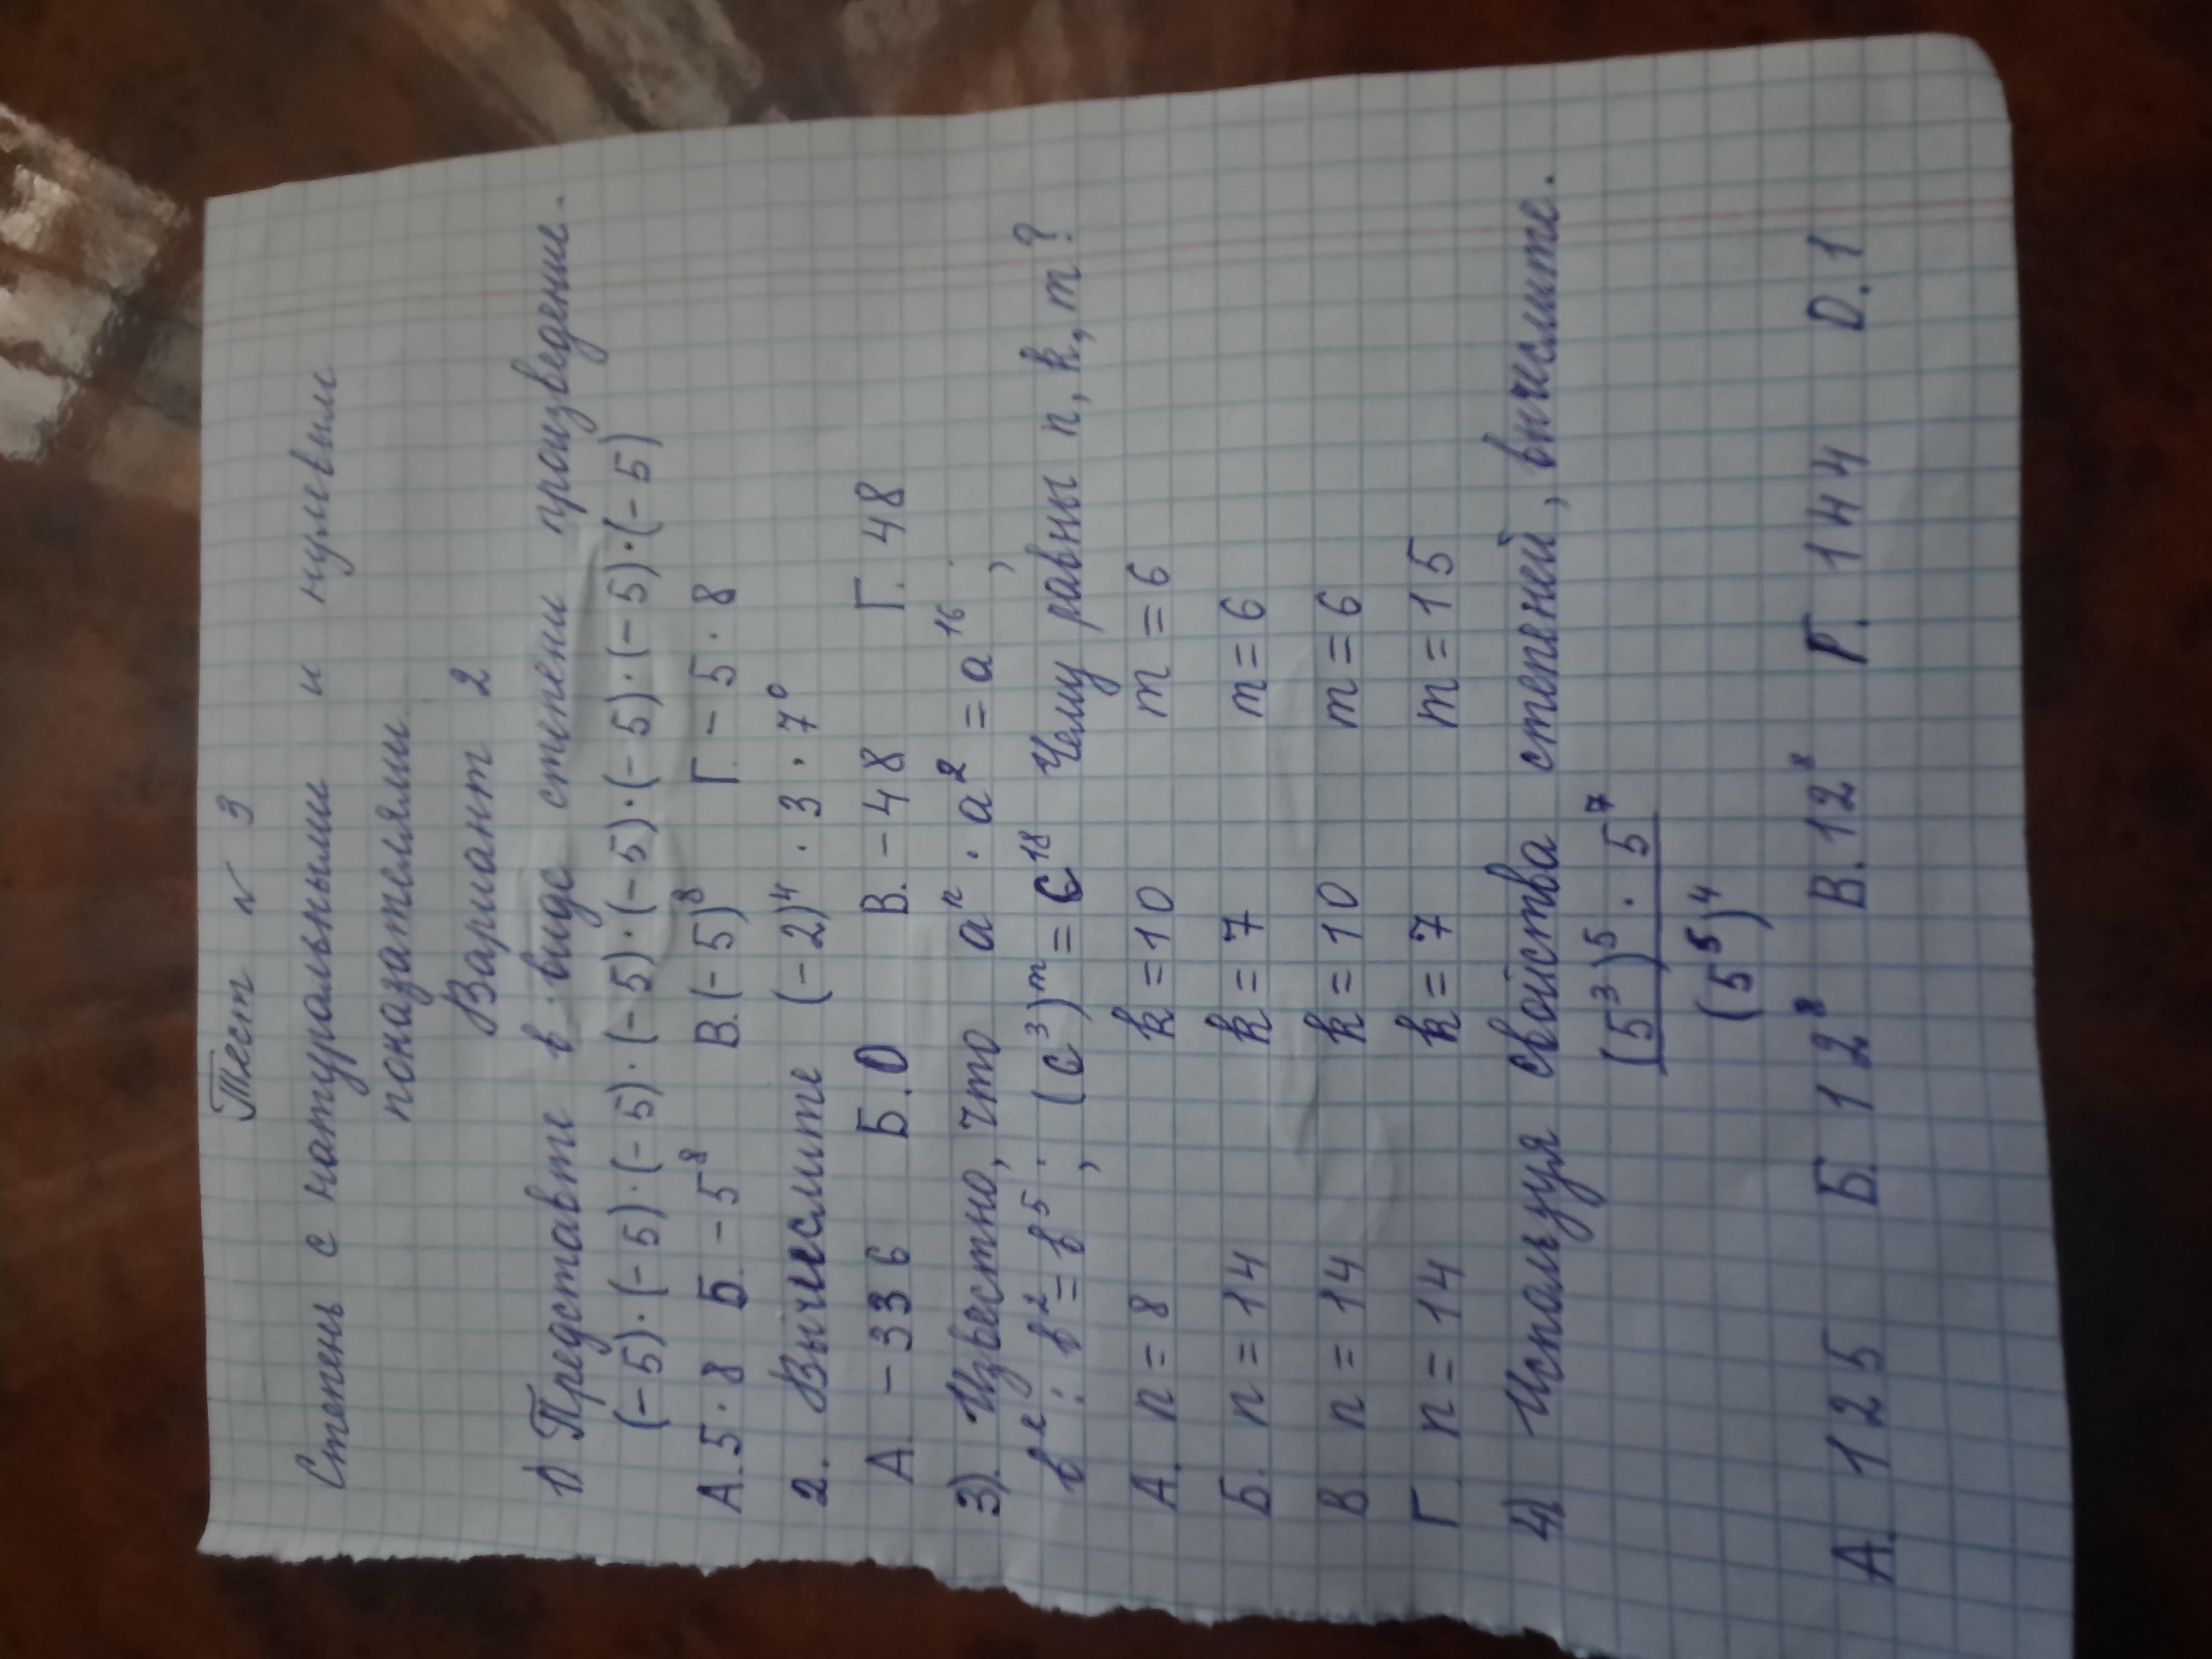 Тест N 3
Степень с натуральными и нулевым
показателями
Вариант 2
1) Представте в виде степени произведение.
(-5)·(-5)·(-5)·(-5)·(-5)·(-5)·(-5)·(-5)
А. 5·8 Б. -5⁸ В. (-5)⁸ Г. -5·8
2. Вычислите (-2)⁴ · 3 · 7⁰
А. -336 Б. 0 В. -48 Г. 48
3). Известно, что aⁿ · a² = a¹⁶ ;
bᵏ : b² = b⁵ ; (c³)ᵐ = c¹⁸ Чему равны n, k, m?
А. n = 8 k = 10 m = 6
Б. n = 14 k = 7 m = 6
В n = 14 k = 10 m = 6
Г n = 14 k = 7 m = 15
4) Используя свойства степеней, вычислите.
(5³)⁵ · 5⁷
(5⁵)⁴
А. 125 Б. 12⁸ В. 12⁸ Г. 144 D. 1